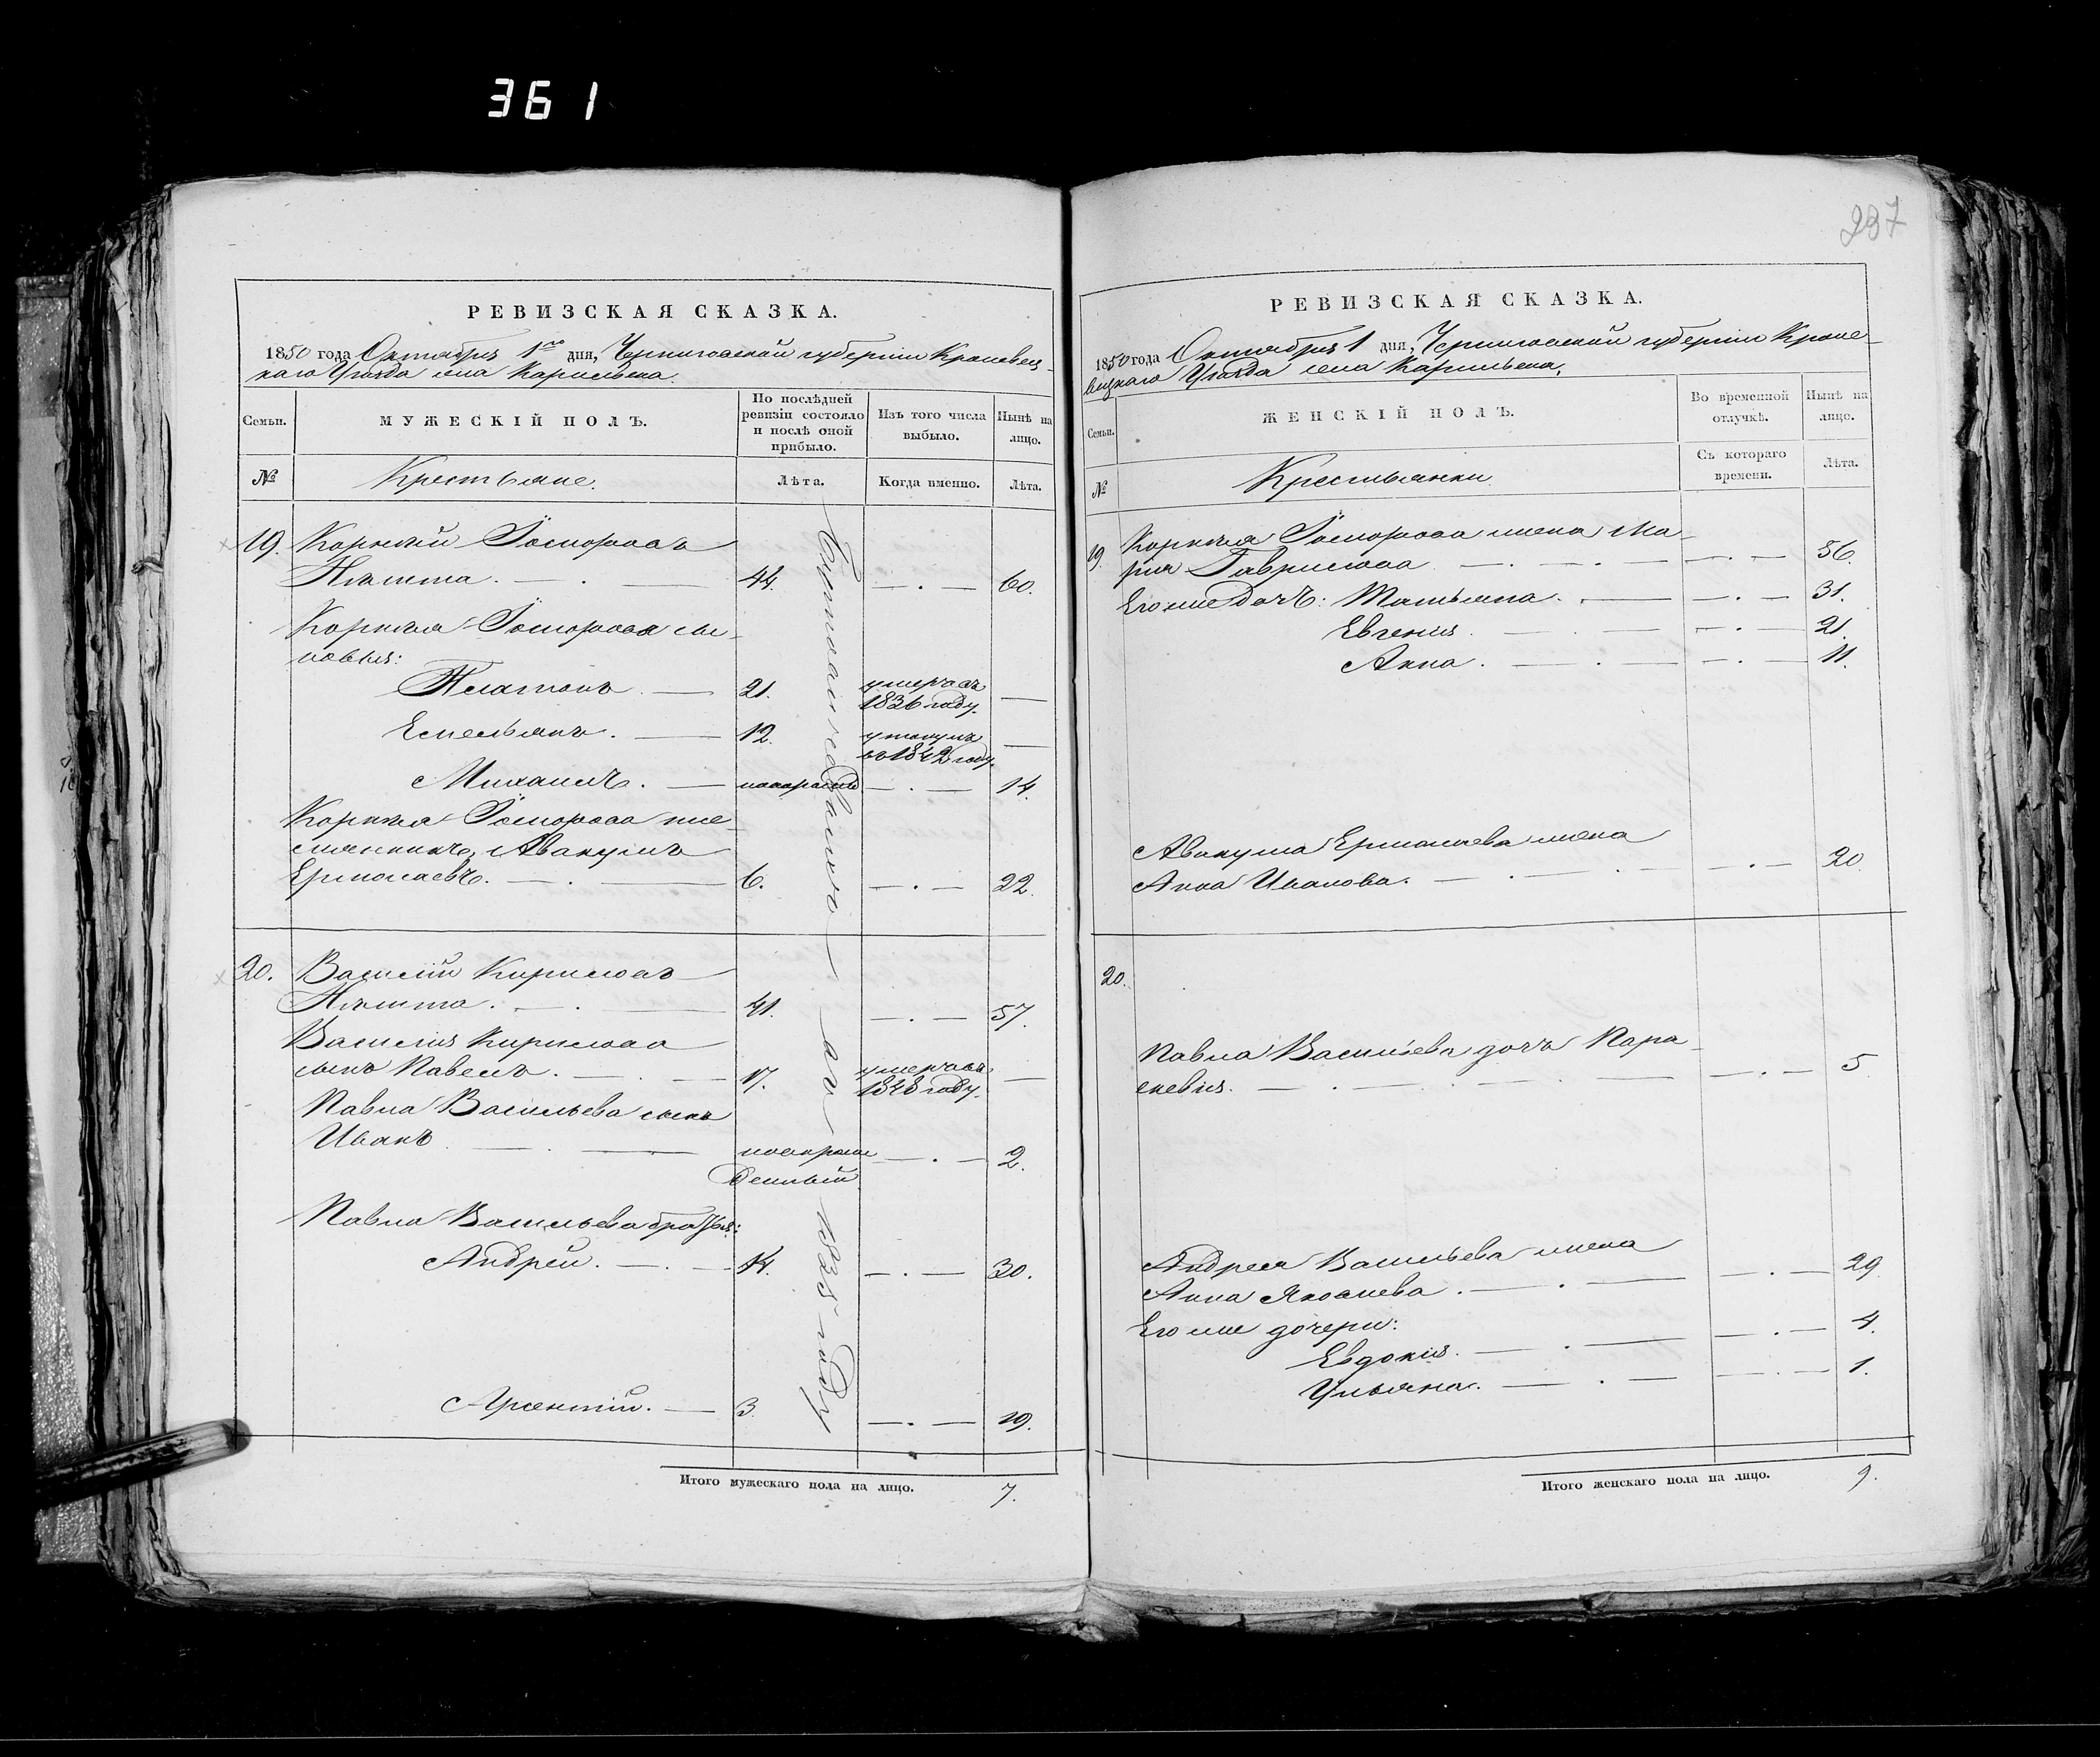 361
РЕВИЗСКАЯ СКАЗКА.
1850 года Октября 1го дня, Черниговской губерніи Кролевец-
каго Уѣзда села Карильска.
Семьи.
МУЖЕСКІЙ ПОЛЪ.
По послѣдней
ревизіи состояло
и послѣ оной
прибыло.
Изъ того числа
выбыло.
Нынѣ на
лицо.
№
Крестьяне.
Лѣта.
Когда именно.
Лѣта.
19. Корнѣй
44. —.— 60.
Корнѣя сы-
новья:
Платонъ. — 21. умеръ въ
1836 году. —
Емельянъ. — 12. утонулъ
въ 1842 году. —
Михаилъ. — новорожд —.— 14.
Корнѣя пле-
мянникъ, Авакумъ
Ермолаевъ. —.— 6. —.— 22.
20. Василій Кириловъ
41. —.— 57.
Василія Кирилова
сынъ Павелъ. —.— 17. умеръ въ
1848 году. —
Павла Васильева сынъ
Иванъ —.— новорож
денный —.— 2.
Павла Васильева братья:
Андрей. —.— 14. —.— 30.
Арсентій. — 3. —.— 19.
въ 1835 году
Итого мужескаго пола на лицо. 7.
237
РЕВИЗСКАЯ СКАЗКА.
1850 года Октября 1 дня, Черниговской губерніи Кроле-
вецкаго Уѣзда села Карильска.
Семьи.
ЖЕНСКІЙ ПОЛЪ.
Во временной
отлучкѣ.
Нынѣ на
лицо.
№
Крестьянки
Съ котораго
времени.
Лѣта.
19. Корнѣя жена Ма-
рия Гаврилова —.— 56.
Его же доч: Татьяна. —.— 31.
Евгенія. —.— 21.
Анна. —.— 11.
Авакума Ермолаева жена
Анна Иванова. —.— 20.
20.
Павла Васильева дочь Пара-
скевія. —.— 5
Андрея Васильева жена
Анна Яковлева. —.— 29.
Его же дочери:
Евдокія. —.— 4.
Ульяна. —.— 1.
Итого женскаго пола на лицо. 9.